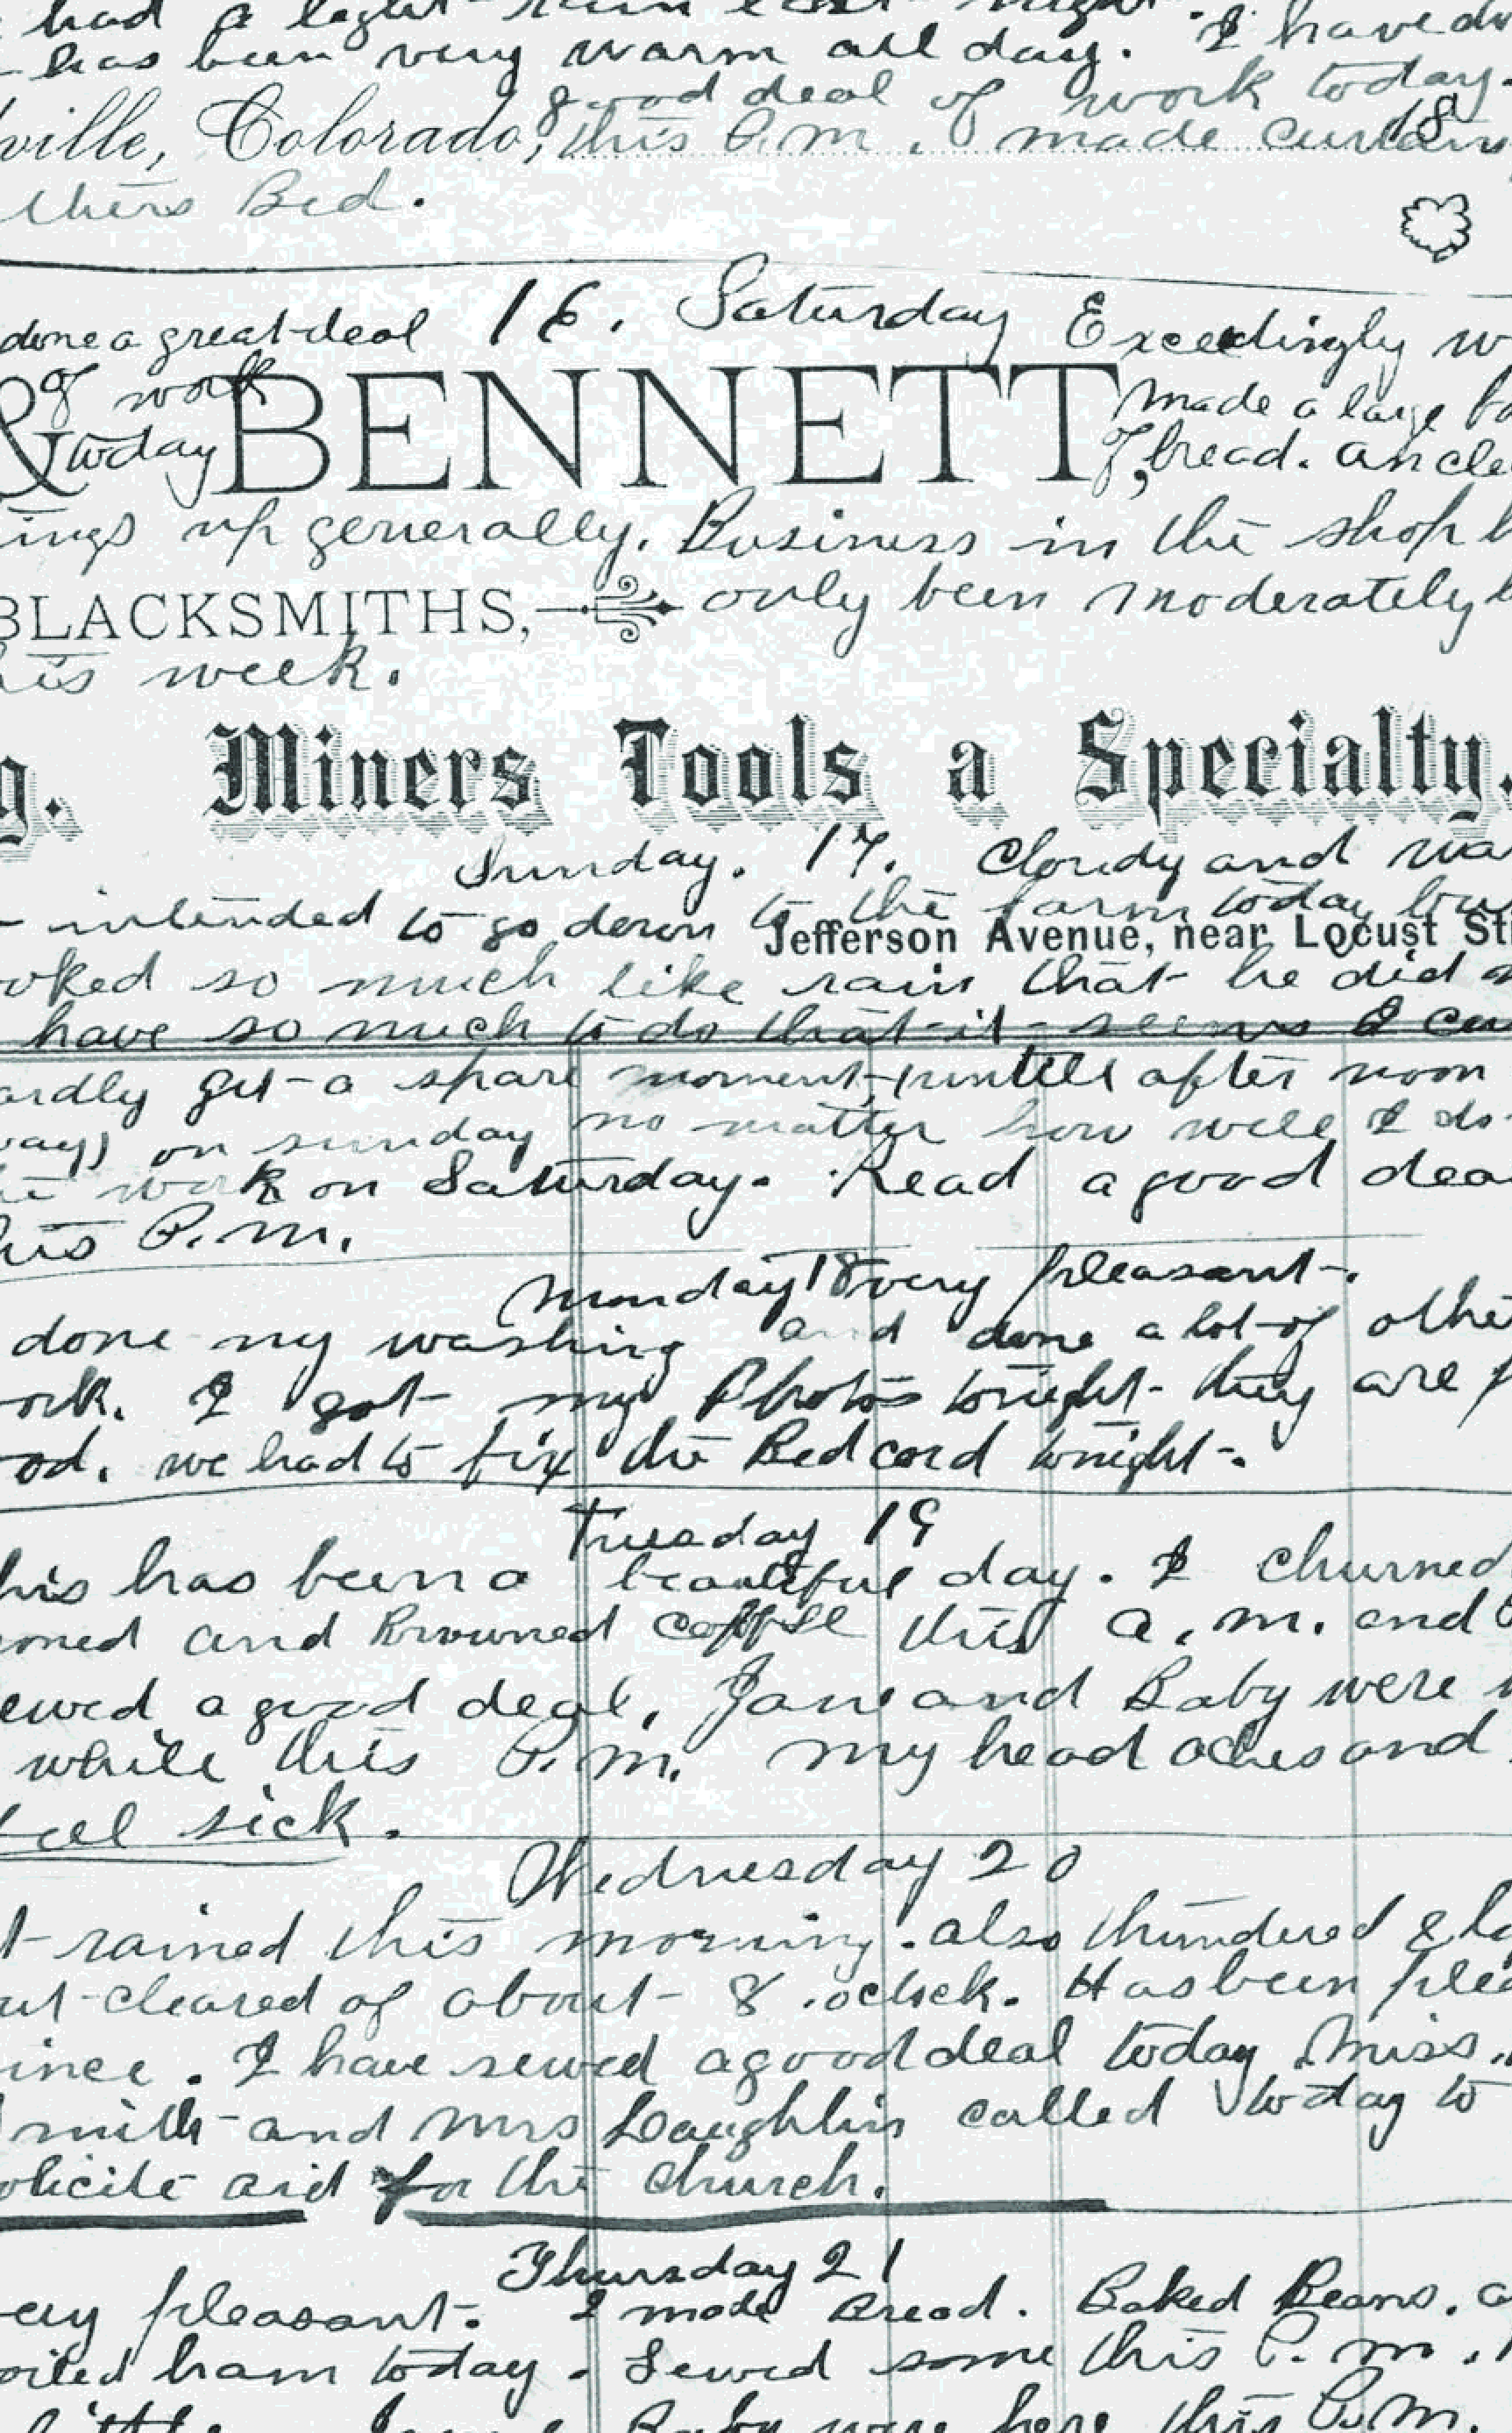 had a light rain last night. I have do
has been very warm all day.
good deal of work today.
ville, Colorado, 18
this P.M. I made curtain
thers Bed.
16. Saturday Exceedingly w
done a great deal
of work
today
& BENNETT,
made a large
of bread. an clea
ings up generally. Business in the shop
BLACKSMITHS,
only been moderately
his week.
g. Miners Tools a Specialty.
Sunday. 17. Cloudy and wa
intended to go down to the farm today but
Jefferson Avenue, near Locust St
ooked so much like rain that he did
have so much to do that it seems I can
ardly get a spare moment untill after noon
ways on sunday no matter how well I do
work on Saturday. Read a good dea
his P.M.
Monday 18 very pleasant.
done my washing and done a lot of othe
ork. I got my Photos tonight they are
od. we had to fix the Bed cord tonight.
Tuesday 19
his has been a beautiful day. I churned
oned and Browned coffee this a.m. and
ewed a good deal. Jane and Baby were
while this P.M. my head aches and
eel sick.
Wednesday 20
t rained this morning. also thundered &
ut cleared of about 8 oclock. Has been plea
ince. I have sewed a good deal today Miss.
mith and Mrs Laughlin called today to
olicite aid for the church.
Thursday 21
ery pleasant. I made Bread. Baked Beans.
oiled ham today. Sewed some this P.M.
Baby were here this P.M.